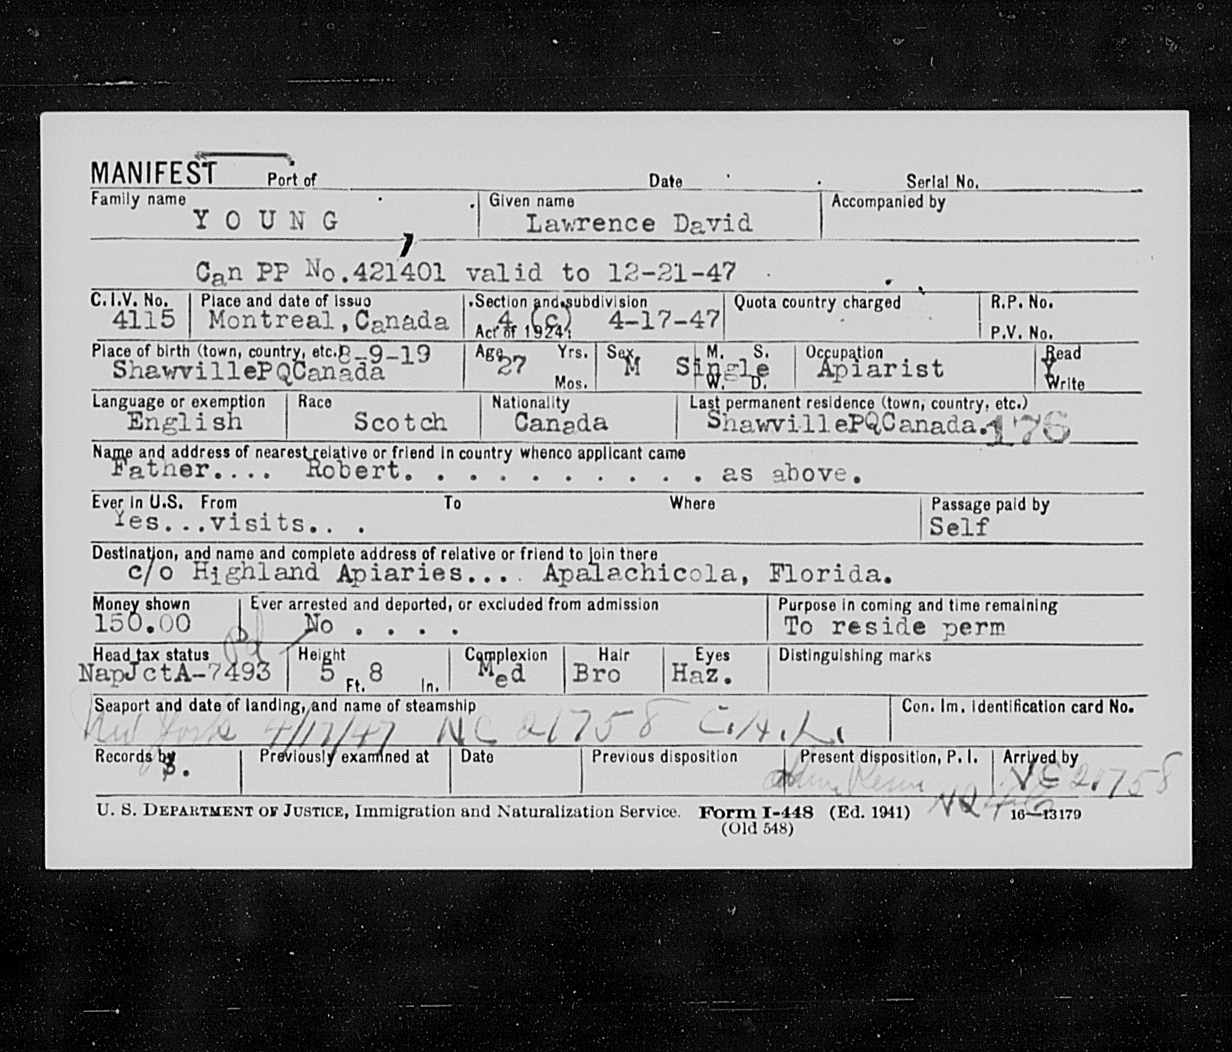 MANIFEST Port of Date Serial No.
Family name Given name Accompanied by
Y O U N G Lawrence David
Can PP No.421401 valid to 12-21-47
C.I.V. No. Place and date of issue Section and subdivision Quota country charged R.P. No.
4115 Montreal,Canada 4 (c) 4-17-47
Act of 1924: P.V. No.
Place of birth (town, country, etc.) 8-9-19 Age Yrs. Sex M. S. Occupation Read
ShawvillePQCanada 27 M Single Apiarist Y
Mos. W. D. Write
Language or exemption Race Nationality Last permanent residence (town, country, etc.)
English Scotch Canada ShawvillePQCanada. 176
Name and address of nearest relative or friend in country whence applicant came
Father.... Robert. . . . . . . . . . as above.
Ever in U.S. From To Where Passage paid by
Yes...visits.. . Self
Destination, and name and complete address of relative or friend to join there
c/o Highland Apiaries.... Apalachicola, Florida.
Money shown Ever arrested and deported, or excluded from admission Purpose in coming and time remaining
150.00 No . . . . To reside perm
Pd
Head tax status Height Complexion Hair Eyes Distinguishing marks
NapJctA-7493 5 Ft. 8 In. Med Bro Haz.
Seaport and date of landing, and name of steamship Con. Im. Identification card No.
New York 4/17/47 NC 21758 C.A.L.
Records by Previously examined at Date Previous disposition Present disposition, P. I. Arrived by
S. NC 21758
U. S. DEPARTMENT OF JUSTICE, Immigration and Naturalization Service. Form I-448 (Ed. 1941) 16—13179
(Old 548)